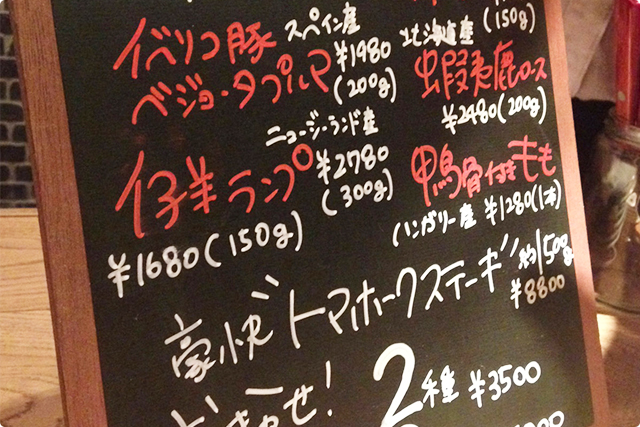 (150g)
スペイン産
イベリコ豚
ベジョータプルマ
¥1980
(200g)
北海道産
蝦夷鹿ロース
¥2480(200g)
ニュージーランド産
仔羊ランプ
¥2780
(300g)
¥1680(150g)
鴨骨付きもも
ハンガリー産 ¥1280(1本)
豪快トマホークステーキ 約1500g
¥8800
2種 ¥3500